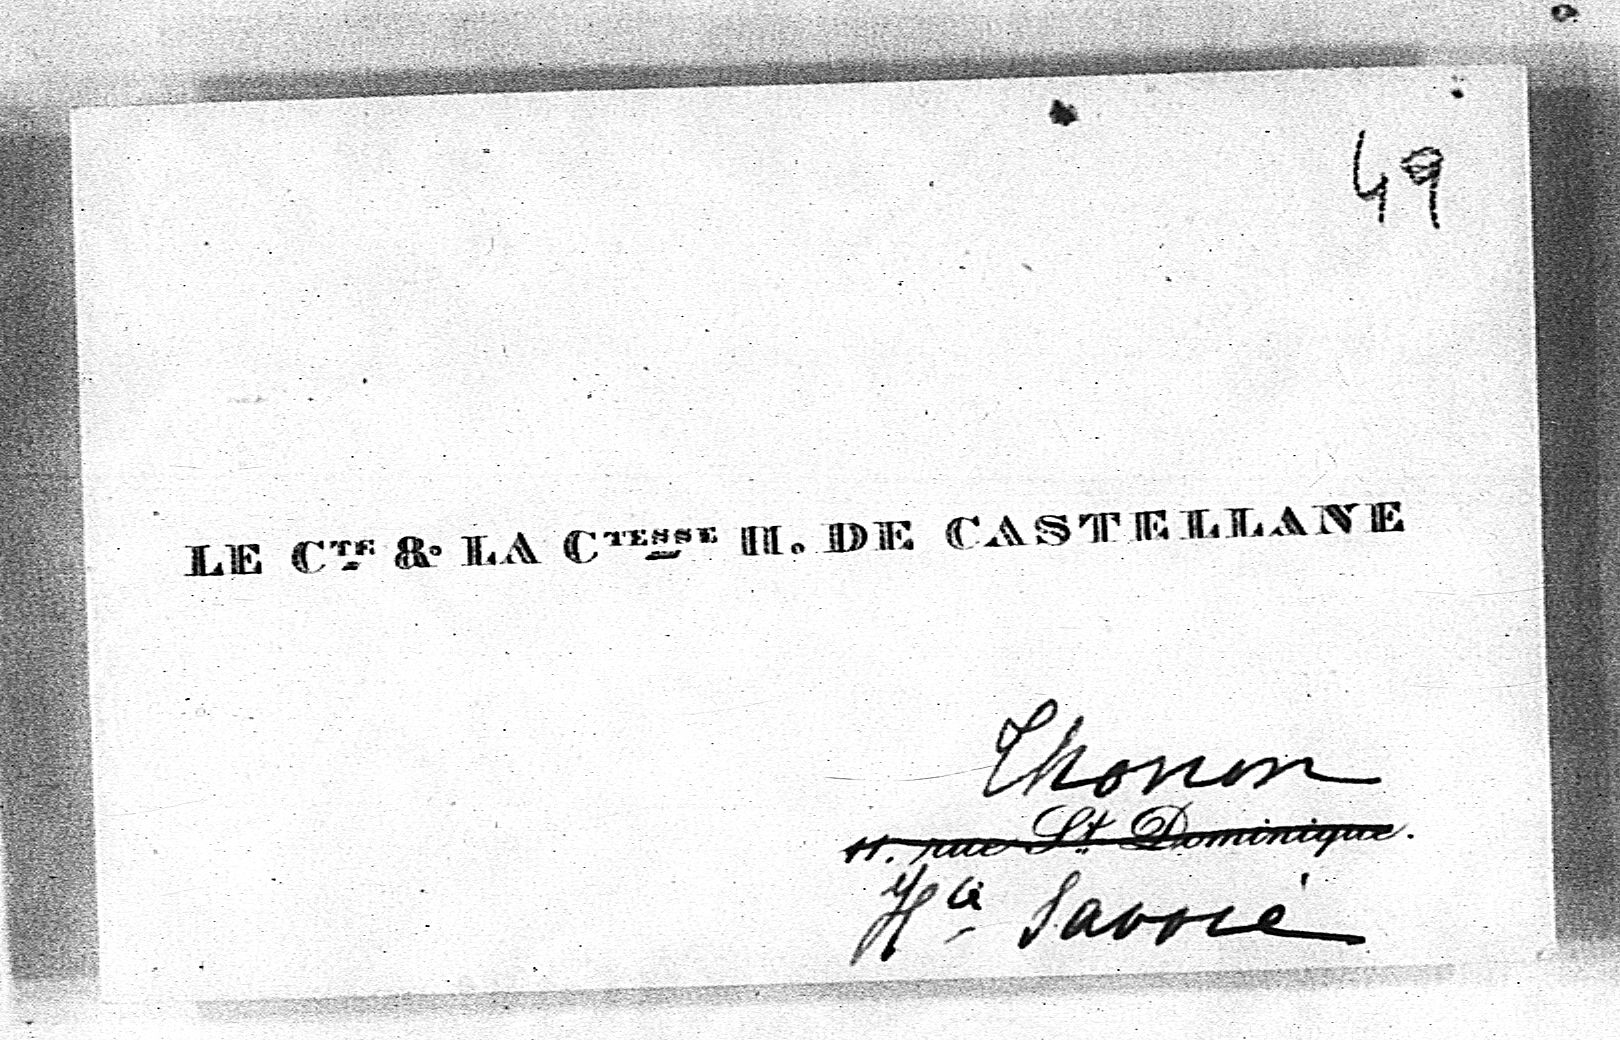 49
LE CTE & LA CTESSE H. DE CASTELLANE
Thonon
11. rue St. Dominique.
Hte Savoie